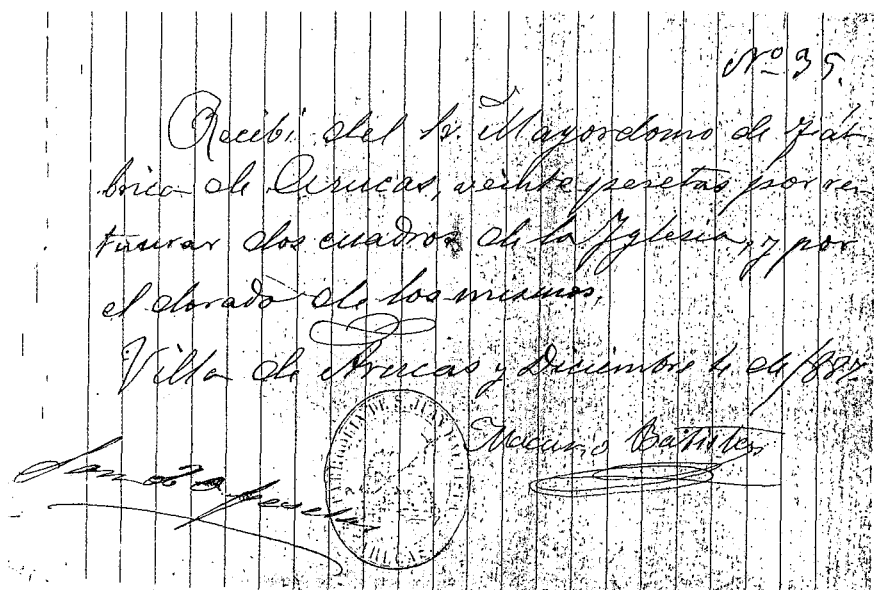 Nº 35.
Recibí del Sr. Mayordomo de Fá
brica de Arucas, veinte pesetas por res
taurar dos cuadros de la Yglesia, y por
el dorado de los mismos.
Villa de Arucas y Diciembre 4 de 1887
Macario Batista
PARROQUIA DE S. JUAN BAUTISTA
ARUCAS